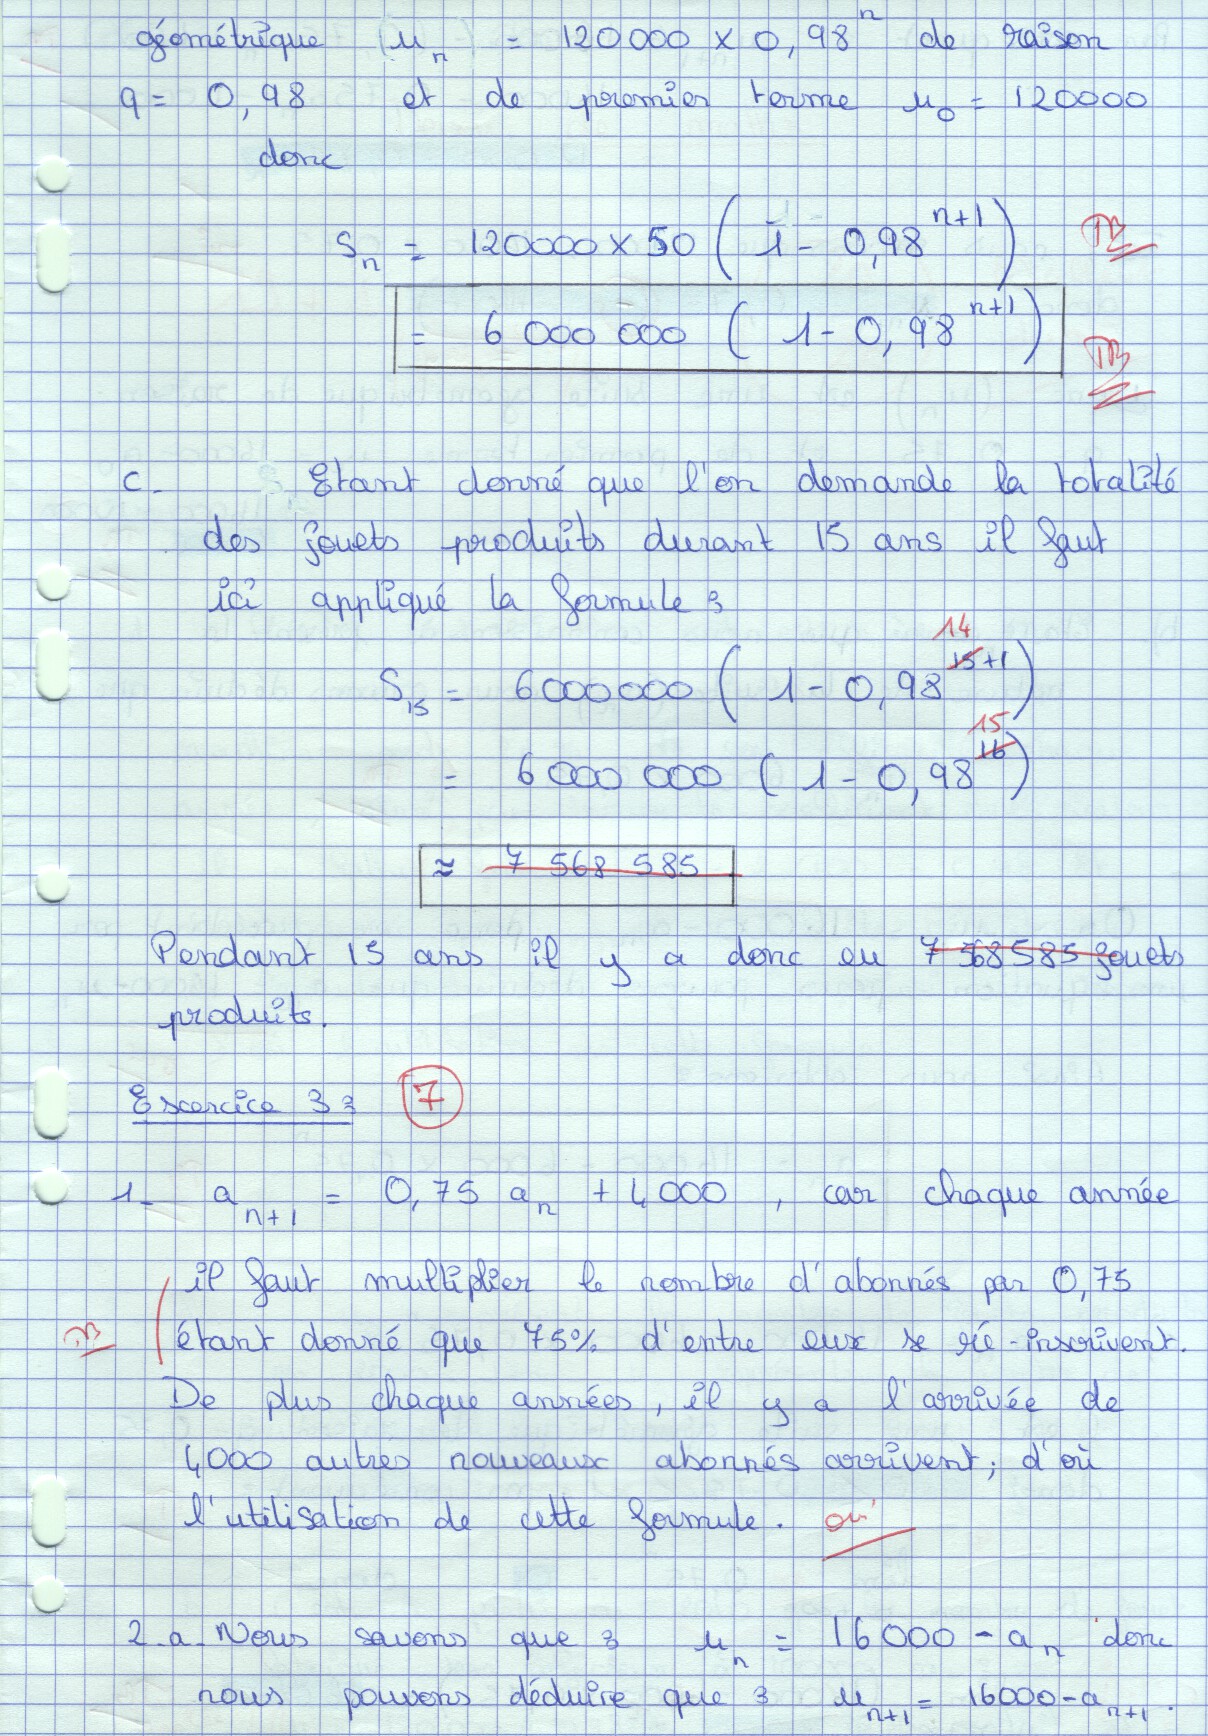 géométrique (u_n) = 120000 x 0,98^n de raison
q = 0,98 et de premier terme u_0 = 120000
donc
S_n = 120000 x 50 ( 1 - 0,98^{n+1} ) TB
= 6 000 000 ( 1 - 0,98^{n+1} ) TB
c. Etant donné que l'on demande la totalité
des jouets produits durant 15 ans il faut
ici appliqué la formule :
14
S_15 = 6000000 ( 1 - 0,98^{15+1} )
15
= 6 000 000 ( 1 - 0,98^{16} )
≈ 7 568 585
Pendant 15 ans il y a donc eu 7 568 585 jouets
produits.
Exercice 3 : 7
1- a_{n+1} = 0,75 a_n + 4000 , car chaque année
il faut multiplier le nombre d'abonnés par 0,75
TB étant donné que 75% d'entre eux se ré-inscrivent.
De plus chaque années, il y a l'arrivée de
4000 autres nouveaux abonnés arrivent; d'où
l'utilisation de cette formule. oui
2.a. Nous savons que : u_n = 16000 - a_n donc
nous pouvons déduire que : u_{n+1} = 16000 - a_{n+1}.